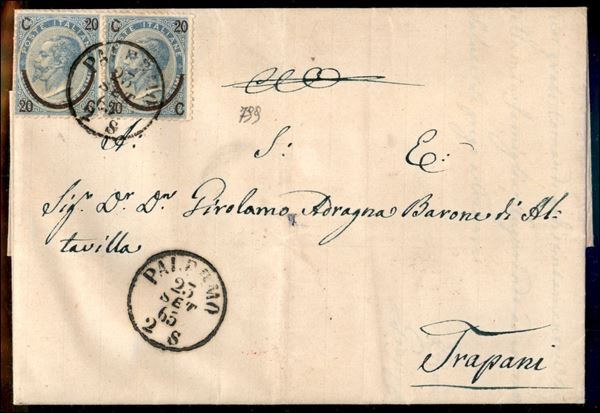 C 20 C 20
POSTE ITALIANE POSTE ITALIANE
20 C 20 C
PALERMO
23
SET
65
2 S
799
A. S: E:
Sigr. Dr. Dn. Girolamo Adragna Barone di Al=
tavilla
PALERMO
23
SET
65
2 S
Trapani